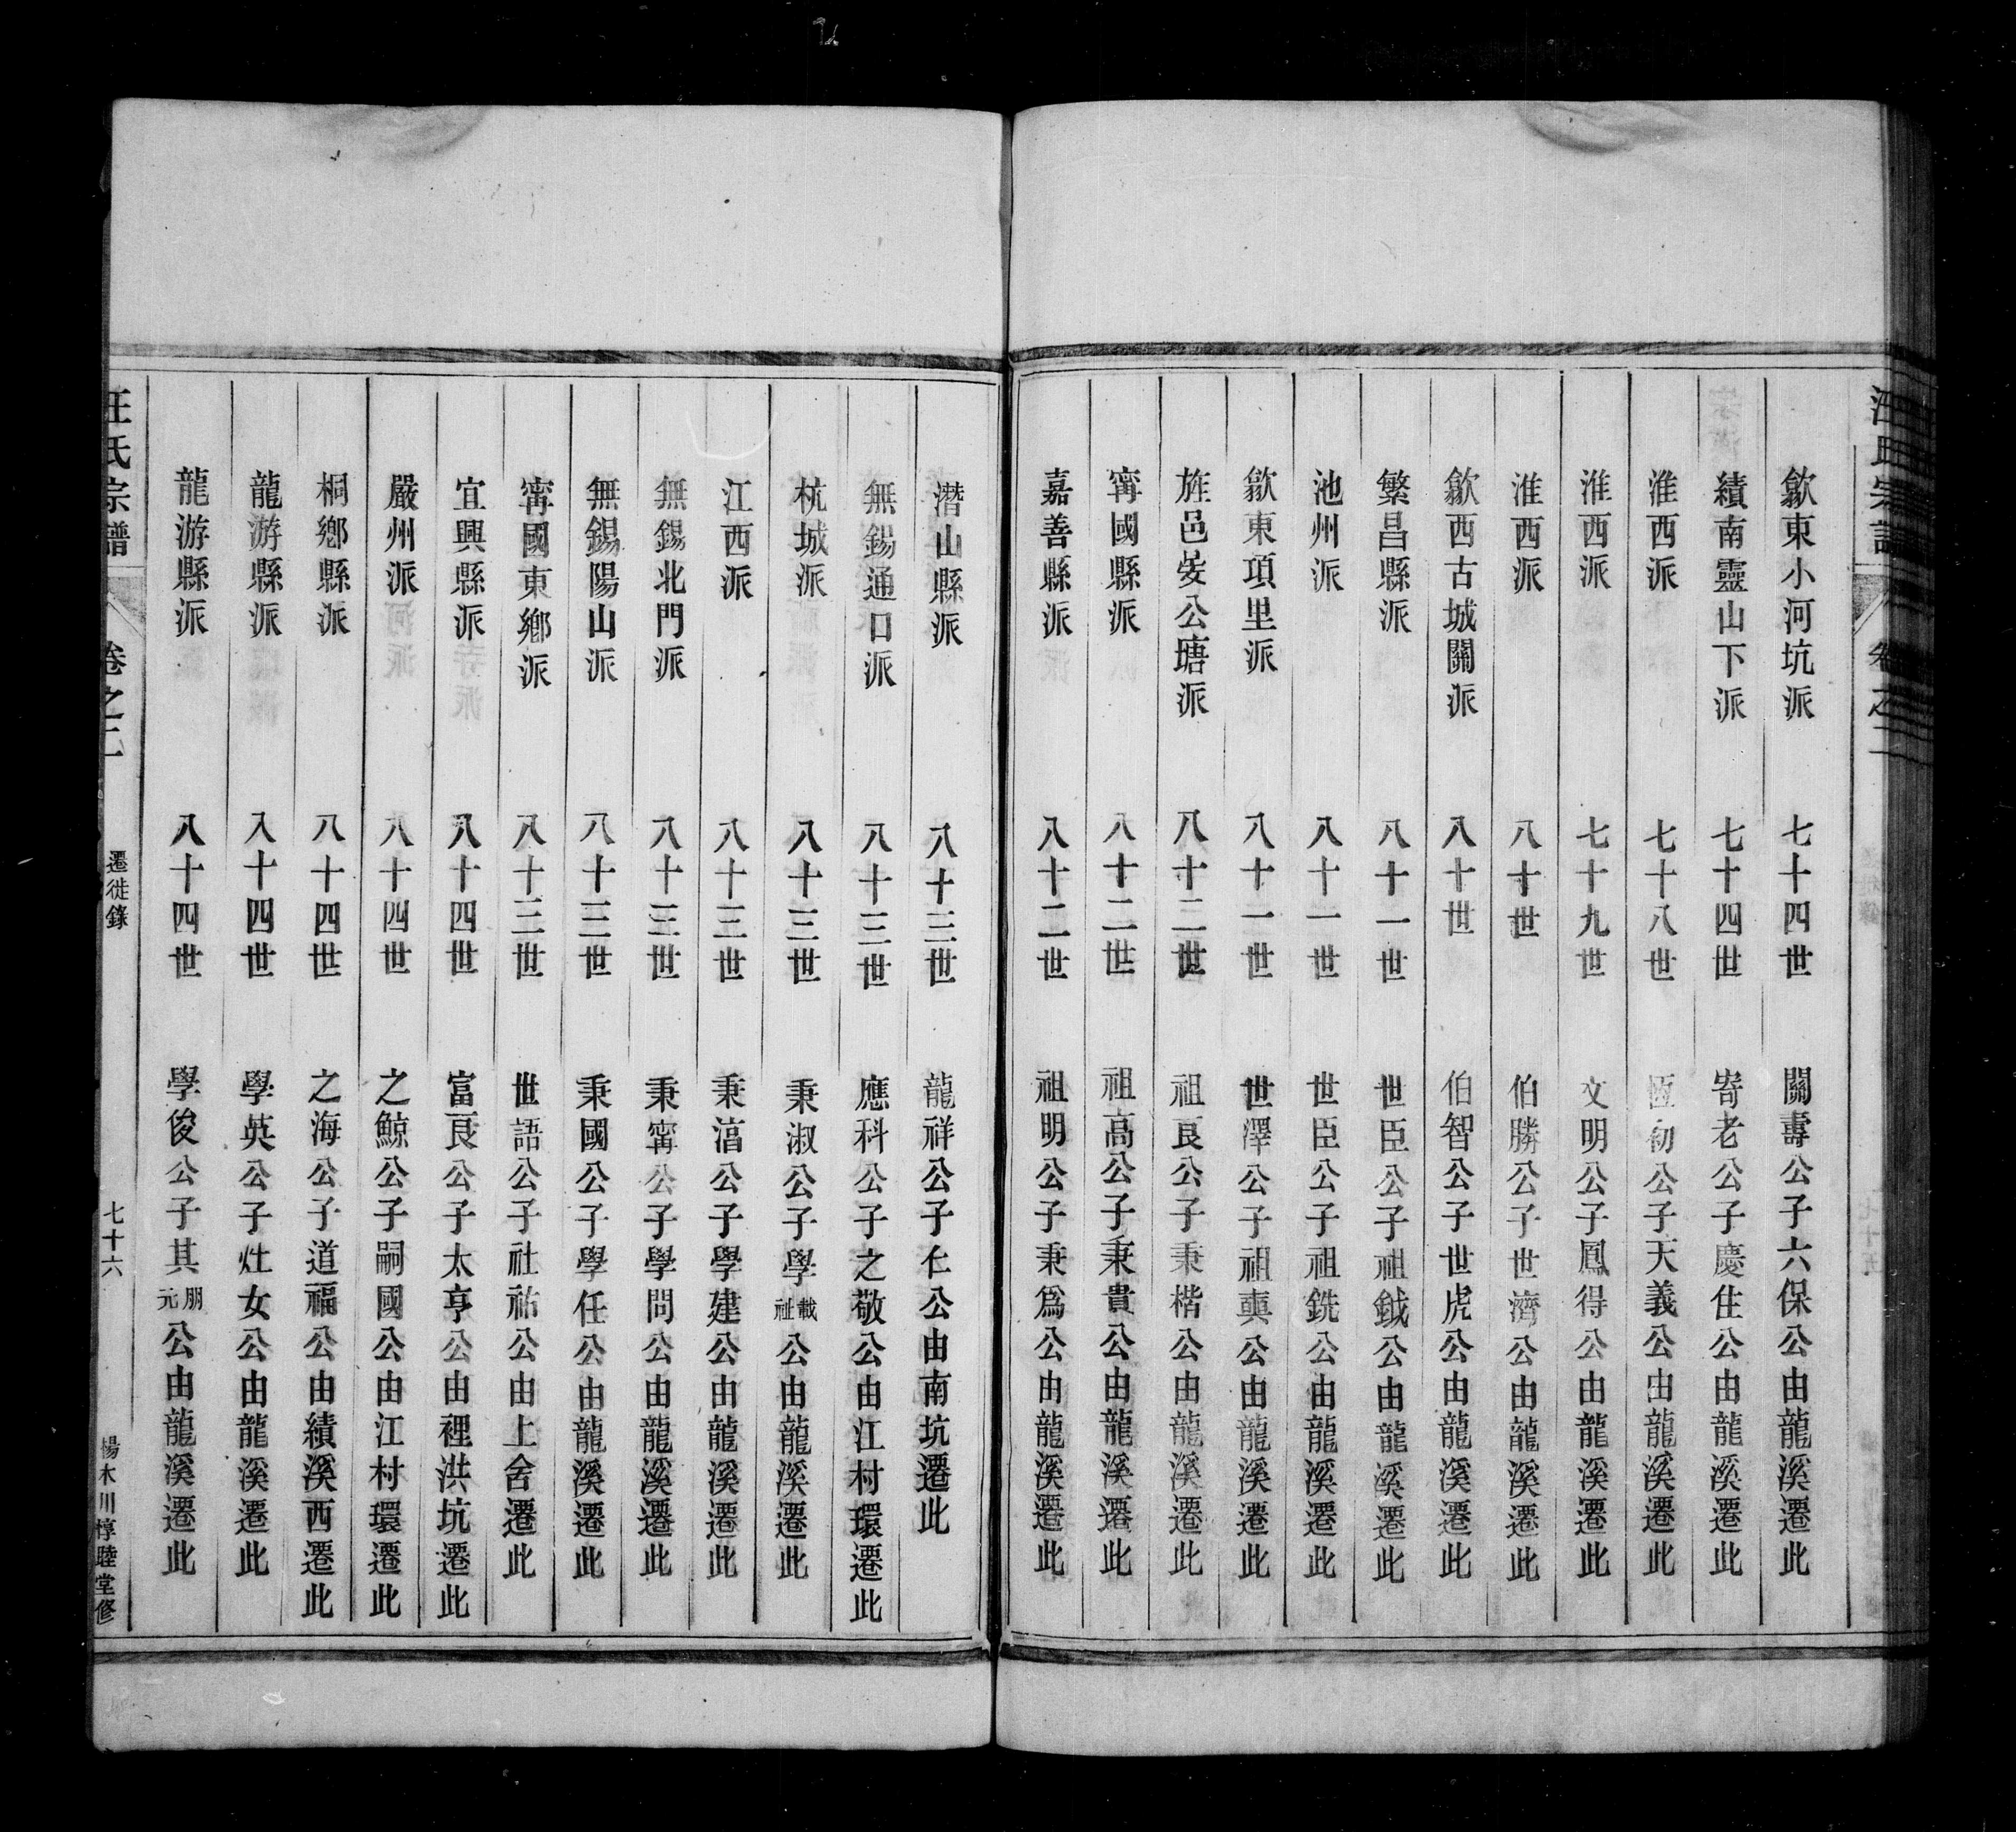 汪氏宗譜 卷之二
歙東小河坑派 七十四世 關壽公子六保公由龍溪遷此
績南靈山下派 七十四世 寄老公子慶住公由龍溪遷此
淮西派 七十八世 恆初公子天義公由龍溪遷此
淮西派 七十九世 文明公子鳳得公由龍溪遷此
淮西派 八十世 伯勝公子世濟公由龍溪遷此
歙西古城關派 八十世 伯智公子世虎公由龍溪遷此
繁昌縣派 八十一世 世臣公子祖鉞公由龍溪遷此
池州派 八十一世 世臣公子祖銑公由龍溪遷此
歙東項里派 八十一世 世澤公子祖㒹公由龍溪遷此
旌邑晏公塘派 八十二世 祖良公子秉楷公由龍溪遷此
寗國縣派 八十二世 祖高公子秉貴公由龍溪遷此
嘉善縣派 八十二世 祖明公子秉爲公由龍溪遷此
潛山縣派 八十三世 龍祥公子仁公由南坑遷此
無錫通口派 八十三世 應科公子之敬公由江村環遷此
杭城派 八十三世 秉淑公子學載祉公由龍溪遷此
江西派 八十三世 秉湻公子學建公由龍溪遷此
無錫北門派 八十三世 秉寗公子學問公由龍溪遷此
無錫陽山派 八十三世 秉國公子學任公由龍溪遷此
寗國東鄉派 八十三世 世語公子社祐公由上舍遷此
宜興縣派 八十四世 富良公子太亨公由裡洪坑遷此
嚴州派 八十四世 之鯨公子嗣國公由江村環遷此
桐鄉縣派 八十四世 之海公子道福公由績溪西遷此
龍游縣派 八十四世 學英公子灶女公由龍溪遷此
龍游縣派 八十四世 學俊公子其朋元公由龍溪遷此
汪氏宗譜 卷之二 遷徙錄 七十六 楊木川惇睦堂修